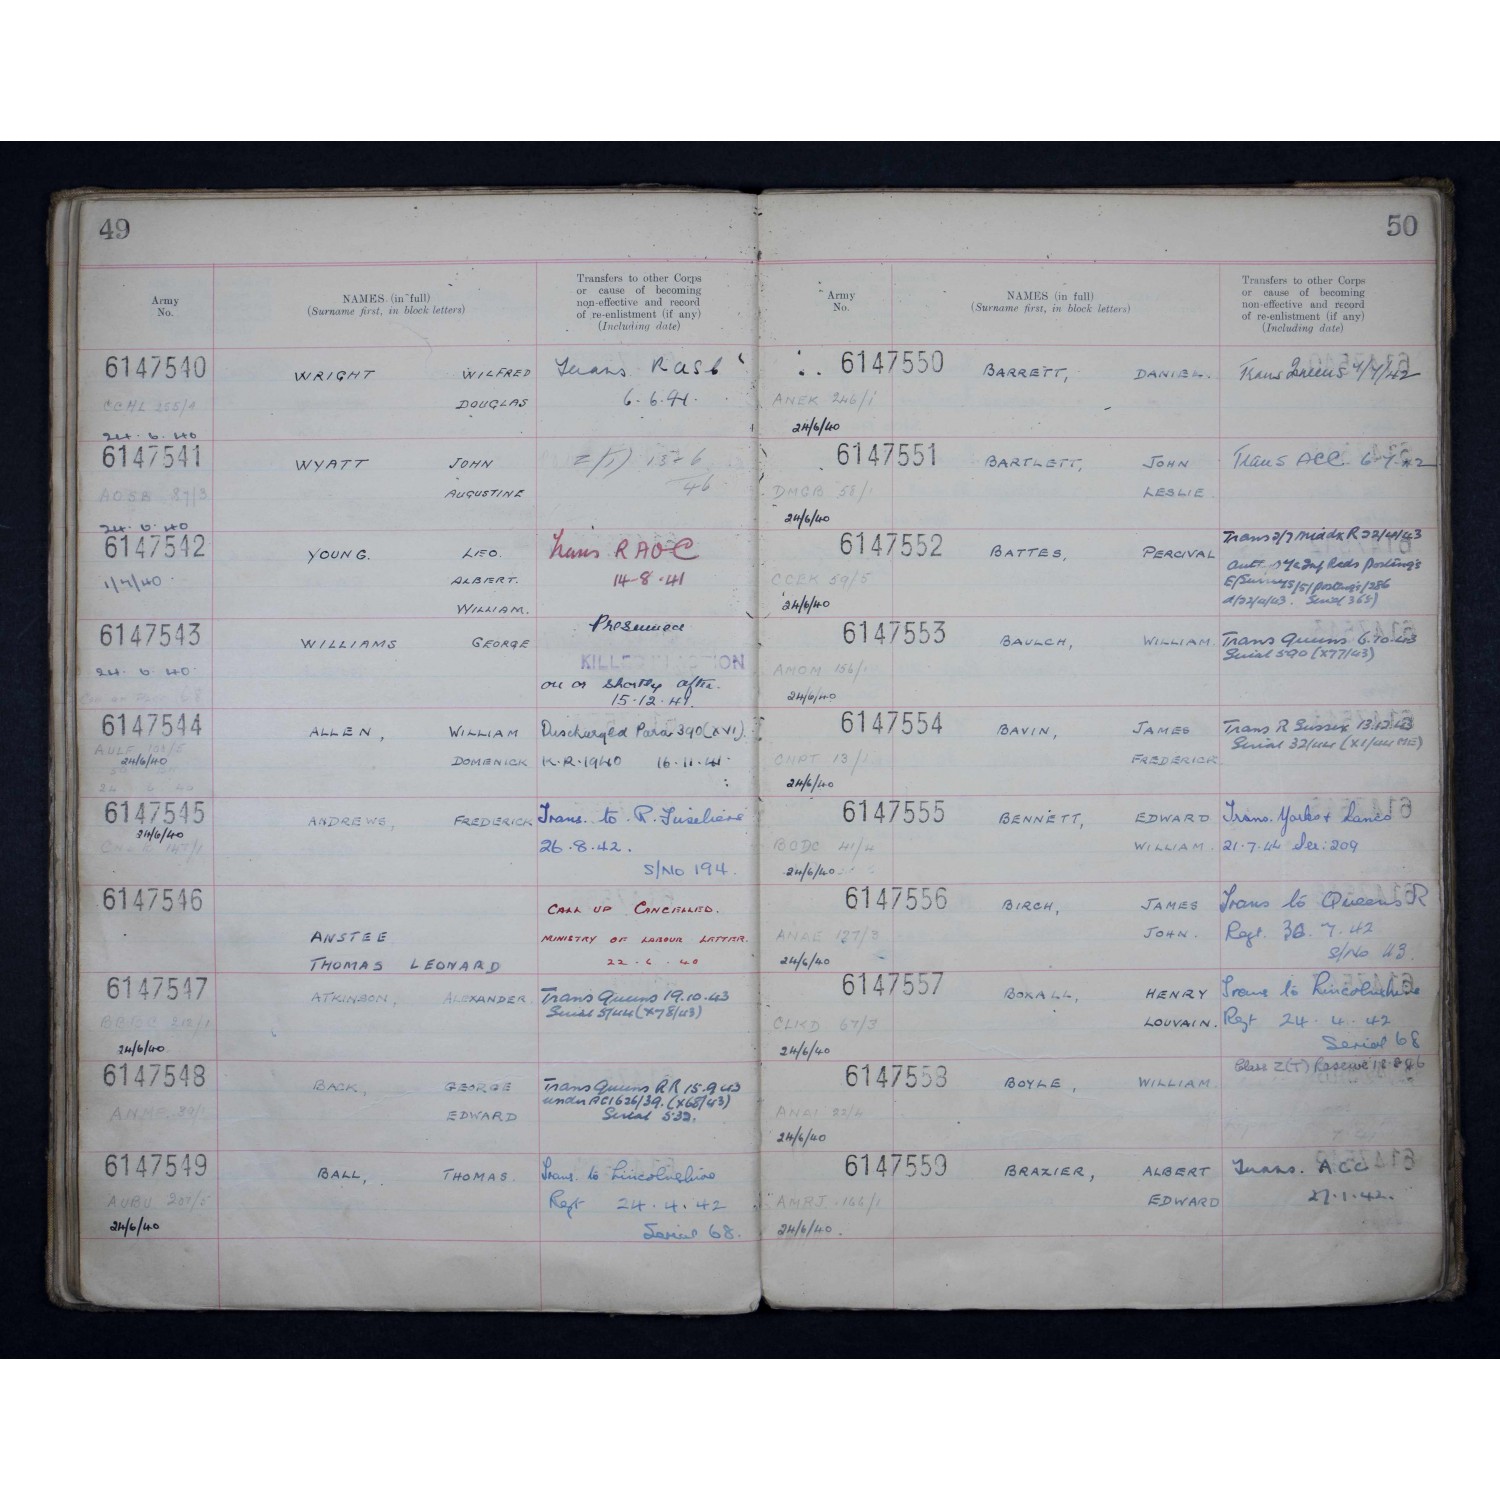 49
Army
No.
NAMES (in full)
(Surname first, in block letters)
Transfers to other Corps
or cause of becoming
non-effective and record
of re-enlistment (if any)
(Including date)
6147540
WRIGHT WILFRED Trans RASC
DOUGLAS 6.6.41.
24.6.40
6147541
WYATT JOHN
AUGUSTINE 46
24.6.40
6147542
YOUNG. LEO. Trans RAOC
1/7/40 ALBERT. 14-8-41
WILLIAM.
6147543 Presumed
WILLIAMS GEORGE
24.6.40 KILLED ACTION
on or shortly after.
15.12.41.
6147544
ALLEN, WILLIAM Discharged Para 390 (XVI).
24/6/40 DOMENICK K.R.1940 16.11.41.
6147545
24/6/40
ANDREWS, FREDERICK Trans. to R. Fusiliers
26.8.42.
S/No 194.
6147546
CALL UP CANCELLED.
ANSTEE MINISTRY OF LABOUR LETTER.
THOMAS LEONARD 22.6.40
6147547
ATKINSON, ALEXANDER Trans Queens 19.10.43
Serial 5/44 (X78/43)
24/6/40
6147548
BACK, GEORGE Trans Queens RR 15.9.43
EDWARD under ACI 626/39. (X68/43)
Serial 532.
6147549
BALL, THOMAS. Trans. to Lincolnshire
Regt 24.4.42
24/6/40 Serial 68.
50
Army
No.
NAMES (in full)
(Surname first, in block letters)
Transfers to other Corps
or cause of becoming
non-effective and record
of re-enlistment (if any)
(Including date)
6147550
BARRETT, DANIEL. Trans Queens 7/7/42
ANEK 246/1
24/6/40
6147551
BARTLETT, JOHN Trans ACC 6.7.42
DMCB LESLIE
24/6/40
6147552 Trans 2/7 Middx R 22/4/43
BATTES, PERCIVAL
CCEK 59/5
24/6/40 d/22/4/43. Serial 368)
6147553
BAULCH, WILLIAM Trans Queens 6.10.43
Serial 590 (X77/43)
AMOM 156/1
24/6/40
6147554
BAVIN, JAMES Trans R Sussex 13.12.43
Serial 32/44 (X1/44 ME)
CMPT 13/1 FREDERICK
24/6/40
6147555
BENNETT, EDWARD Trans. Yorks & Lancs
BCDC 41/4 WILLIAM. 21.7.44 Ser: 209
24/6/40
6147556
BIRCH, JAMES Trans to Queens R
ANAE 127/3 JOHN. Regt. 30.7.42
24/6/40 S/No 43
6147557
BOXALL, HENRY Trans to Lincolnshire
CLKD 67/3 LOUVAIN. Regt 24.4.42
24/6/40 Serial 68
6147558 Class Z(T) Reserve
BOYLE, WILLIAM
24/6/40
6147559
BRAZIER, ALBERT Trans. ACC
AMRJ 166/1 EDWARD 27.1.42.
24/6/40.